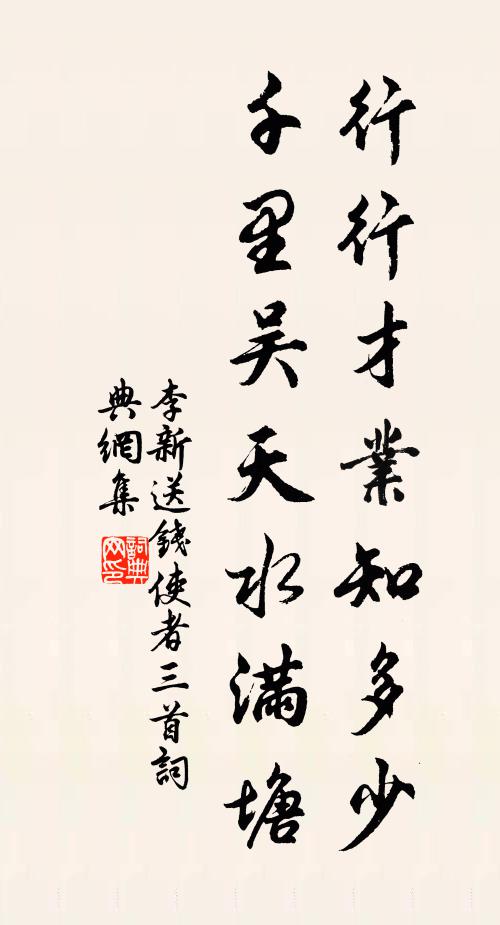 行行才業知多少
千里吴天水满塘
李新送錢使者三首詞
典網集
詞典
网印